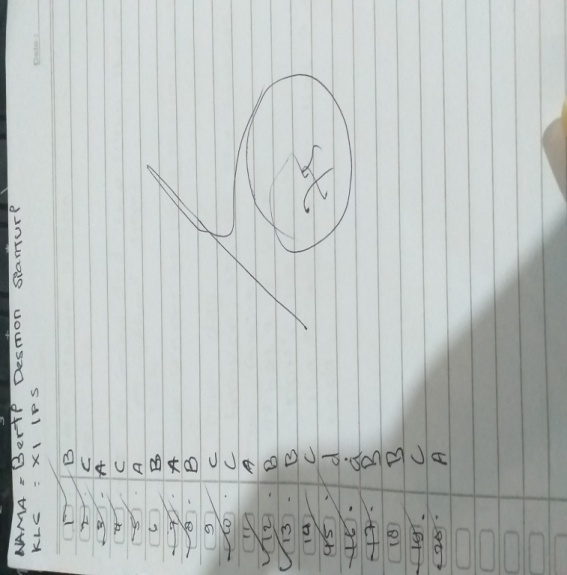 NAMA = BerTP Desmon SIamTurP
KLS : XI IPS
1 B
2 C
3. A
4 C
5. A
6 B
7. A
8. B
9 C
10. C
11 A
12. B
13. B
14 C
15. d
16. a
17. B
18 B
19. C
20. A
75